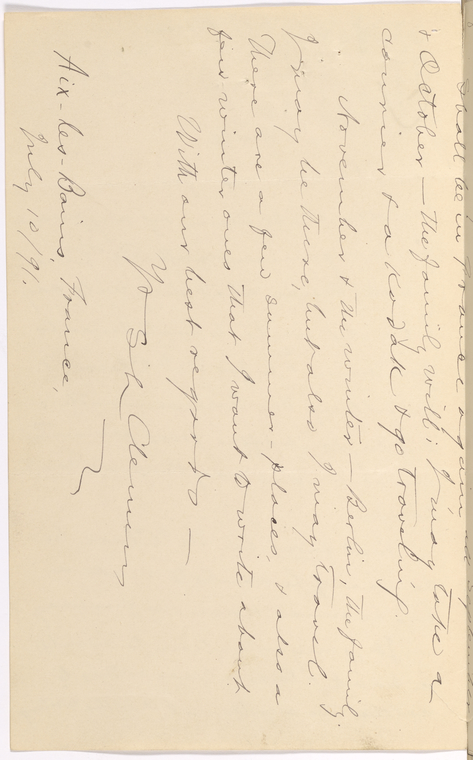 shall be in France again in September
& October — the family will; I may take a
courier & a Kodak & go traveling.
November & the winter — Berlin, the family;
I may be there, but also I may travel.
There are a few summer-places, & also a
few winter ones that I want to write about.
With our best regards —
Ys
S L Clemens
Aix-les-Bains, France,
July 10/91.